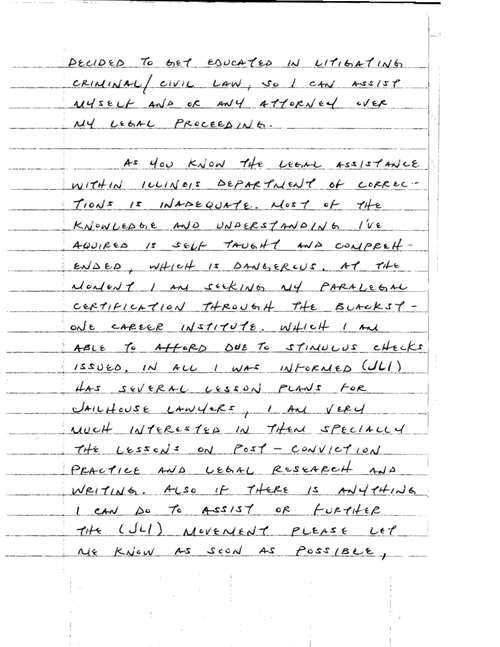 DECIDED TO GET EDUCATED IN LITIGATING
CRIMINAL/CIVIL LAW, SO I CAN ASSIST
MYSELF AND OR ANY ATTORNEY OVER
MY LEGAL PROCEEDING.
AS YOU KNOW THE LEGAL ASSISTANCE
WITHIN ILLINOIS DEPARTMENT OF CORREC-
TIONS IS INADEQUATE. MOST OF THE
KNOWLEDGE AND UNDERSTANDING I'VE
AQUIRED IS SELF TAUGHT AND COMPREH-
ENDED, WHICH IS DANGEROUS. AT THE
MOMENT I AM SEEKING MY PARALEGAL
CERTIFICATION THROUGH THE BLACKST-
ONE CAREER INSTITUTE. WHICH I AM
ABLE TO AFFORD DUE TO STIMULUS CHECKS
ISSUED. IN ALL I WAS INFORMED (JLI)
HAS SEVERAL LESSON PLANS FOR
JAILHOUSE LAWYERS, I AM VERY
MUCH INTERESTED IN THEM SPECIALLY
THE LESSONS ON POST-CONVICTION
PRACTICE AND LEGAL RESEARCH AND
WRITING. ALSO IF THERE IS ANYTHING
I CAN DO TO ASSIST OR FURTHER
THE (JLI) MOVEMENT PLEASE LET
ME KNOW AS SOON AS POSSIBLE,